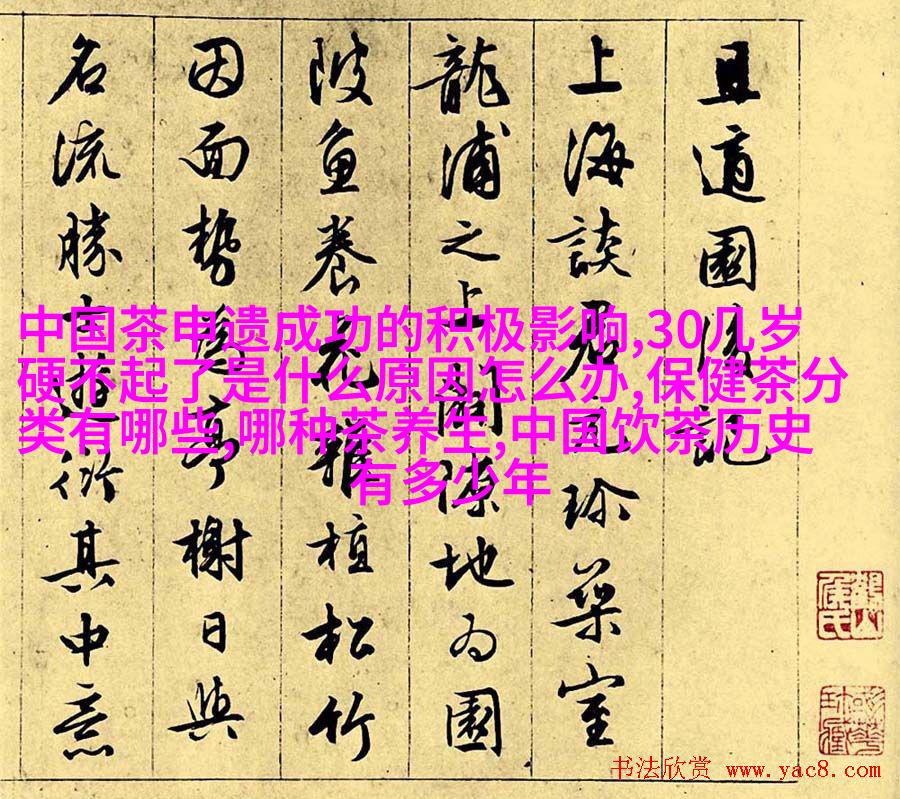 且適園後記
上海談君珍築室
龍浦之上闢隙地為園
陂魚養花雜植松竹
因面勢為亭榭日與
名流勝士遊衍其中意
中国茶申遗成功的积极影响,30几岁
硬不起了是什么原因,怎么办,保健茶分
类有哪些,哪种茶养生,中国饮茶历史
有多少年
书法欣赏 www.yac8.com